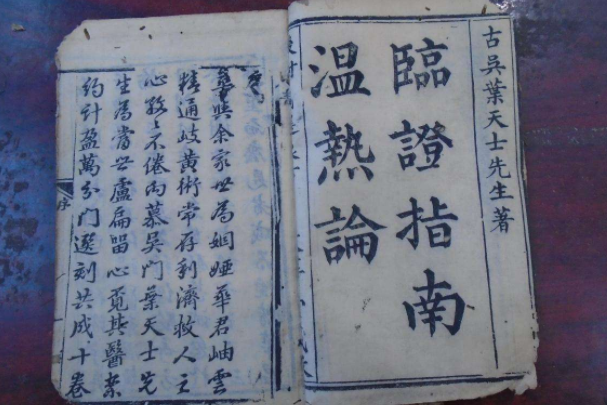 古吳葉天士先生著
臨證指南
温熱論
序
與余家世為姻婭華君岫雲
精通岐黄術常存利濟救人之
心孜々不倦而慕吳門葉天士先
生為當世盧扁留心覓其醫案
約計盈萬分門選刻共成十卷
序